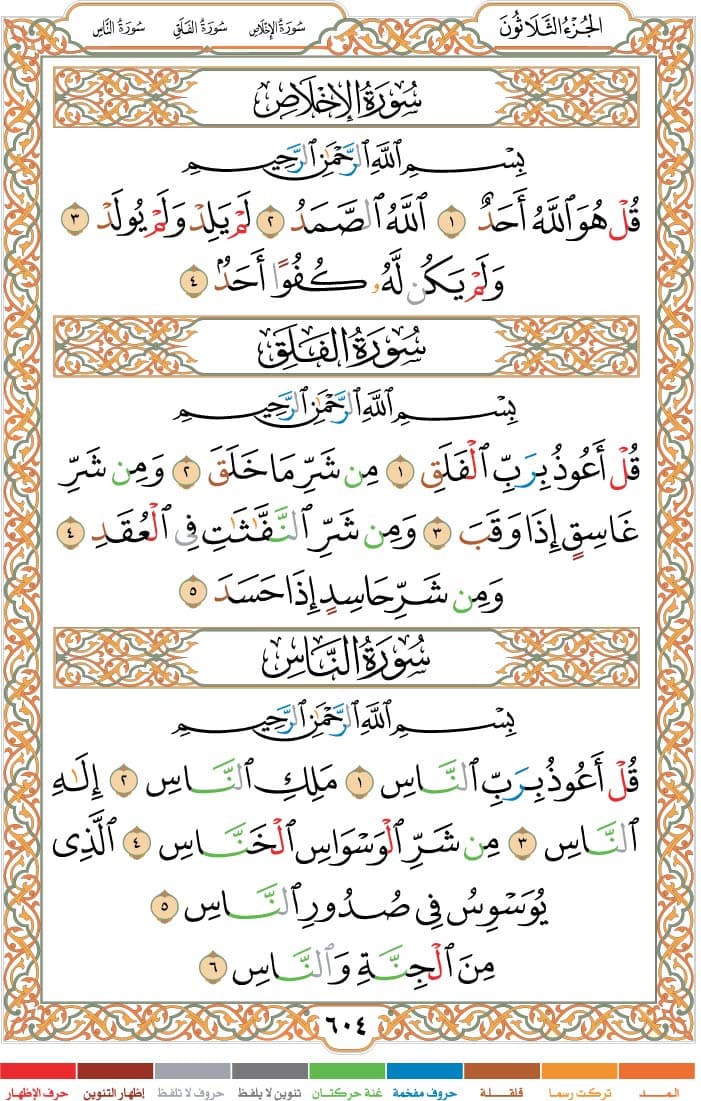 الجُزْءُ الثَّلَاثُونَ
سُورَةُ الإِخْلَاصِ سُورَةُ الفَلَقِ سُورَةُ النَّاسِ
سُورَةُ الإِخْلَاصِ
بِسْمِ ٱللَّهِ ٱلرَّحْمَٰنِ ٱلرَّحِيمِ
قُلْ هُوَ ٱللَّهُ أَحَدٌ ١ ٱللَّهُ ٱلصَّمَدُ ٢ لَمْ يَلِدْ وَلَمْ يُولَدْ ٣
وَلَمْ يَكُن لَّهُۥ كُفُوًا أَحَدٌۢ ٤
سُورَةُ الفَلَقِ
بِسْمِ ٱللَّهِ ٱلرَّحْمَٰنِ ٱلرَّحِيمِ
قُلْ أَعُوذُ بِرَبِّ ٱلْفَلَقِ ١ مِن شَرِّ مَا خَلَقَ ٢ وَمِن شَرِّ
غَاسِقٍ إِذَا وَقَبَ ٣ وَمِن شَرِّ ٱلنَّفَّٰثَٰتِ فِى ٱلْعُقَدِ ٤
وَمِن شَرِّ حَاسِدٍ إِذَا حَسَدَ ٥
سُورَةُ النَّاسِ
بِسْمِ ٱللَّهِ ٱلرَّحْمَٰنِ ٱلرَّحِيمِ
قُلْ أَعُوذُ بِرَبِّ ٱلنَّاسِ ١ مَلِكِ ٱلنَّاسِ ٢ إِلَٰهِ
ٱلنَّاسِ ٣ مِن شَرِّ ٱلْوَسْوَاسِ ٱلْخَنَّاسِ ٤ ٱلَّذِى
يُوَسْوِسُ فِى صُدُورِ ٱلنَّاسِ ٥
مِنَ ٱلْجِنَّةِ وَٱلنَّاسِ ٦
٦٠٤
المـــد تركت رسما قلقـلة حروف مفخمة غنة حركتـان تنوين لا يلفظ حروف لا تلفظ إظهار التنوين حرف الإظهار